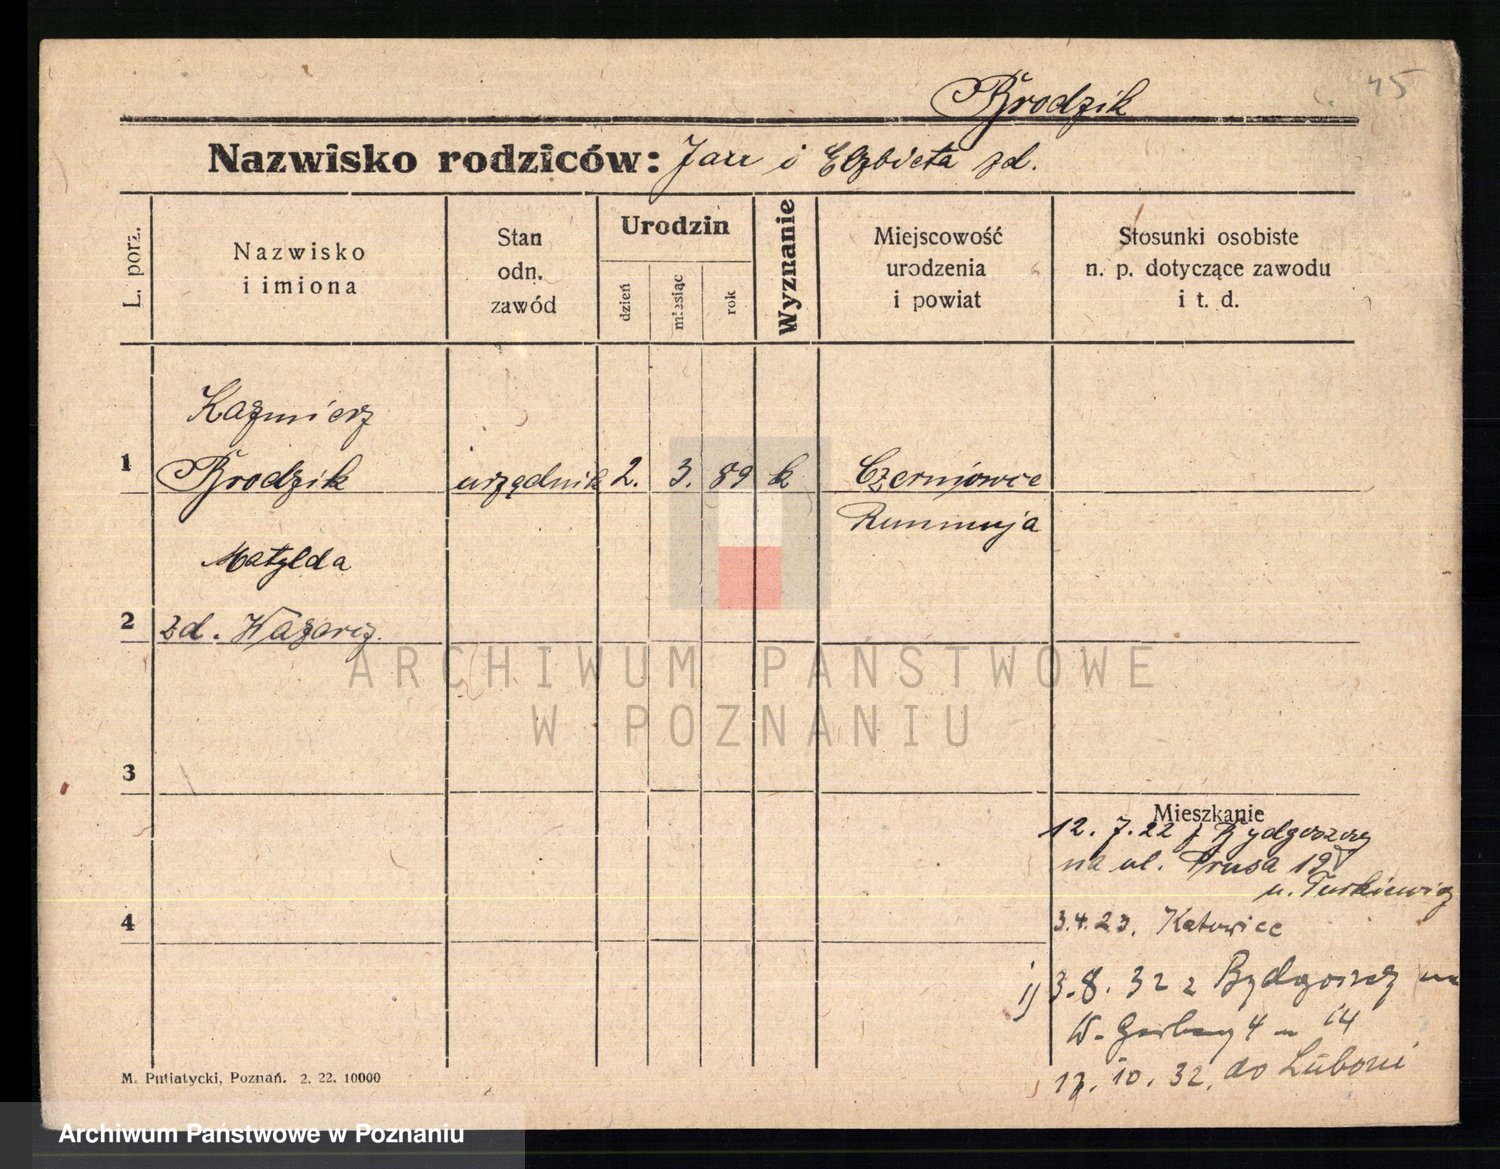 45
Brodzik
Nazwisko rodziców: Jan i Elzbieta zd.
L. porz.
Nazwisko
i imiona
Stan
odn.
zawód
Urodzin
dzień
miesiąc
rok
Wyznanie
Miejscowość
urodzenia
i powiat
Stosunki osobiste
n. p. dotyczące zawodu
i t. d.
Kazmierz
1 Brodzik urzędnik 2. 3. 89 k Czerniowce
Rummuja
Matylda
2 zd. Wazarcz.
ARCHIWUM PAŃSTWOWE
W POZNANIU
3
Mieszkanie
12. 7. 22 z Bydgoszczy
na ul. Prusa 19
u. Turkiewicz
4
3.4.23. Katowice
3.8.32 z Bydgoszcz na
W. Garbary 4 14
17.10.32. do Luboni
M. Putiatycki, Poznań. 2. 22. 10000
Archiwum Państwowe w Poznaniu